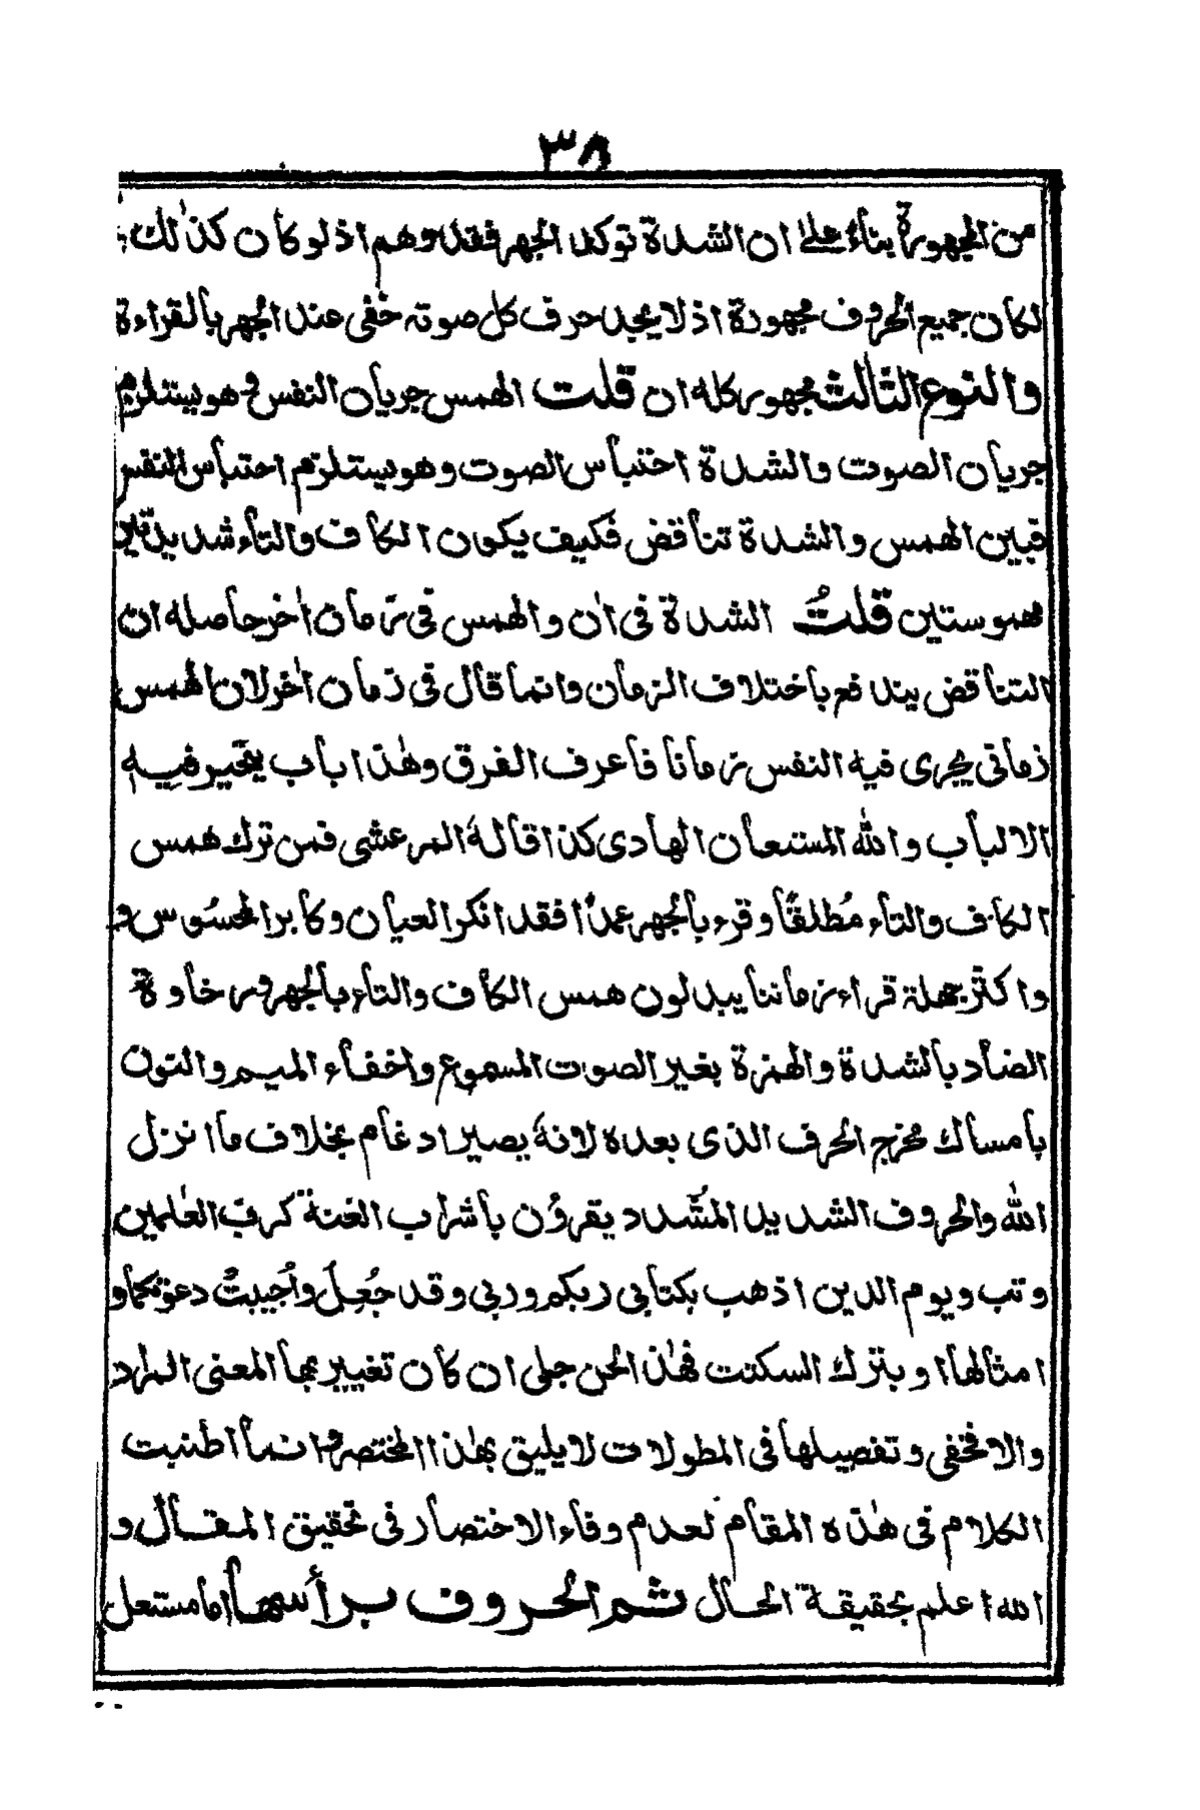 ٣٨
من المجهورة بناء على ان الشدة توكد الجهر فقد وهم اذ لو كان كذٰلك
لكان جميع الحروف مجهورة اذ لا يجد حرف كل صوته خفى عند الجهر بالقراءة
والنوع الثالث مجهور كله ان قلت الهمس جريان النفس وهو يستلزم
جريان الصوت والشدة احتباس الصوت وهو يستلزم احتباس النفس
فبين الهمس والشدة تناقض فكيف يكون الكاف والتاء شديدتين
مهموستين قلتُ الشدة فى اٰن والهمس فى زمان اٰخر حاصله ان
التناقض يندفع باختلاف الزمان وانما قال فى زمان اٰخر لان الهمس
زمانى يجرى فيه النفس زمانا فاعرف الفرق وهٰذا باب يتحير فيه
الالباب والله المستعان الهادى كذا قاله المرعشى فمن ترك همس
الكاف والتاء مُطلقًا وقرء بالجهر عمدًا فقد انكر العيان وكابر المحسُوس و
واكثر جهلة قراء زماننا يبدلون همس الكاف والتاء بالجهر ورخاوة
الضاد بالشدة والهمزة بغير الصوت المسموع واخفاء الميم والنون
بامساك مخرج الحرف الذى بعده لانهٗ يصير ادغام بخلاف ما انزل
الله والحروف الشديد المشُدد يقرؤن باشراب الغنة كربّ العٰلمين
وتب ويوم الدين اذهب بكتابى ربكم وربى وقد جُعِلَ واُجيبتُ دعوتكما و
امثالها او بترك السكتت فهٰذا لحن جلى ان كان تغيير بها المعنى المراد
والا فخفى وتفصيلها فى المطولات لا يليق بهٰذا المختصر وانما اطنبت
الكلام فى هٰذه المقام لعدم وفاء الاختصار فى تحقيق المقال و
الله اعلم بحقيقة الحال ثم الحروف برأسها اما مستعل